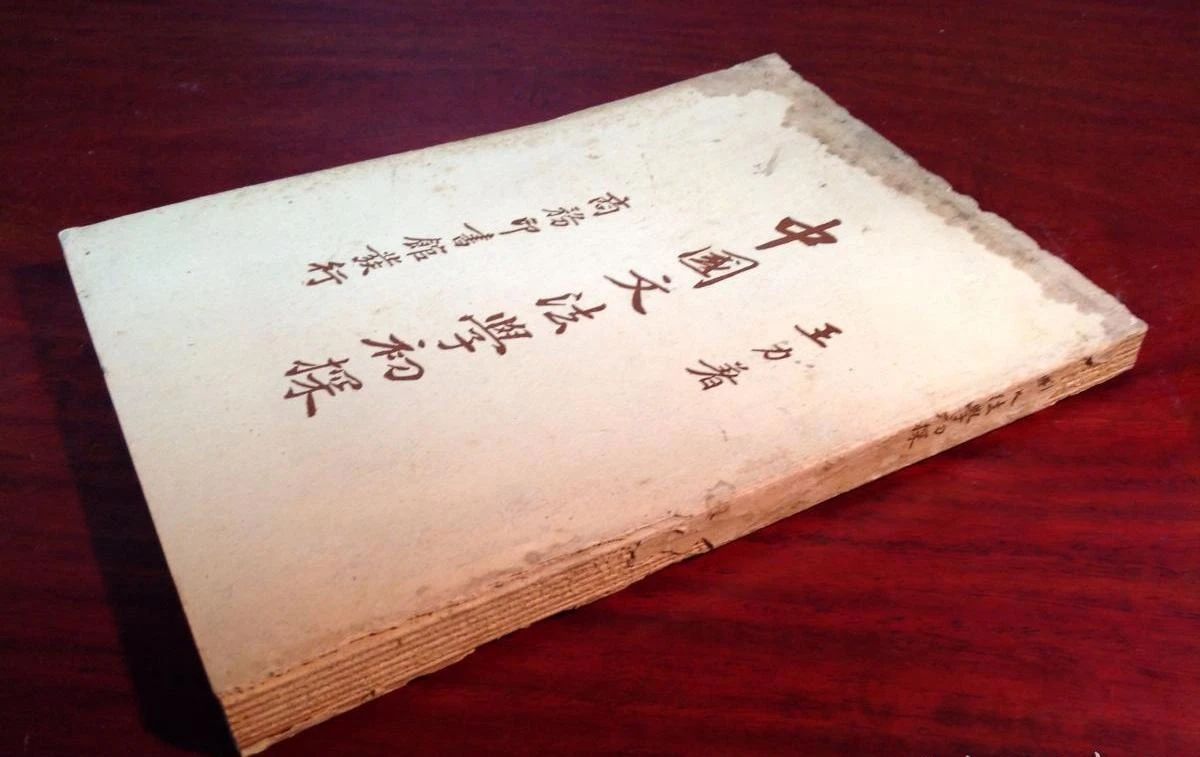 王力著
中國文法學初探
商務印書館發行
法學初探